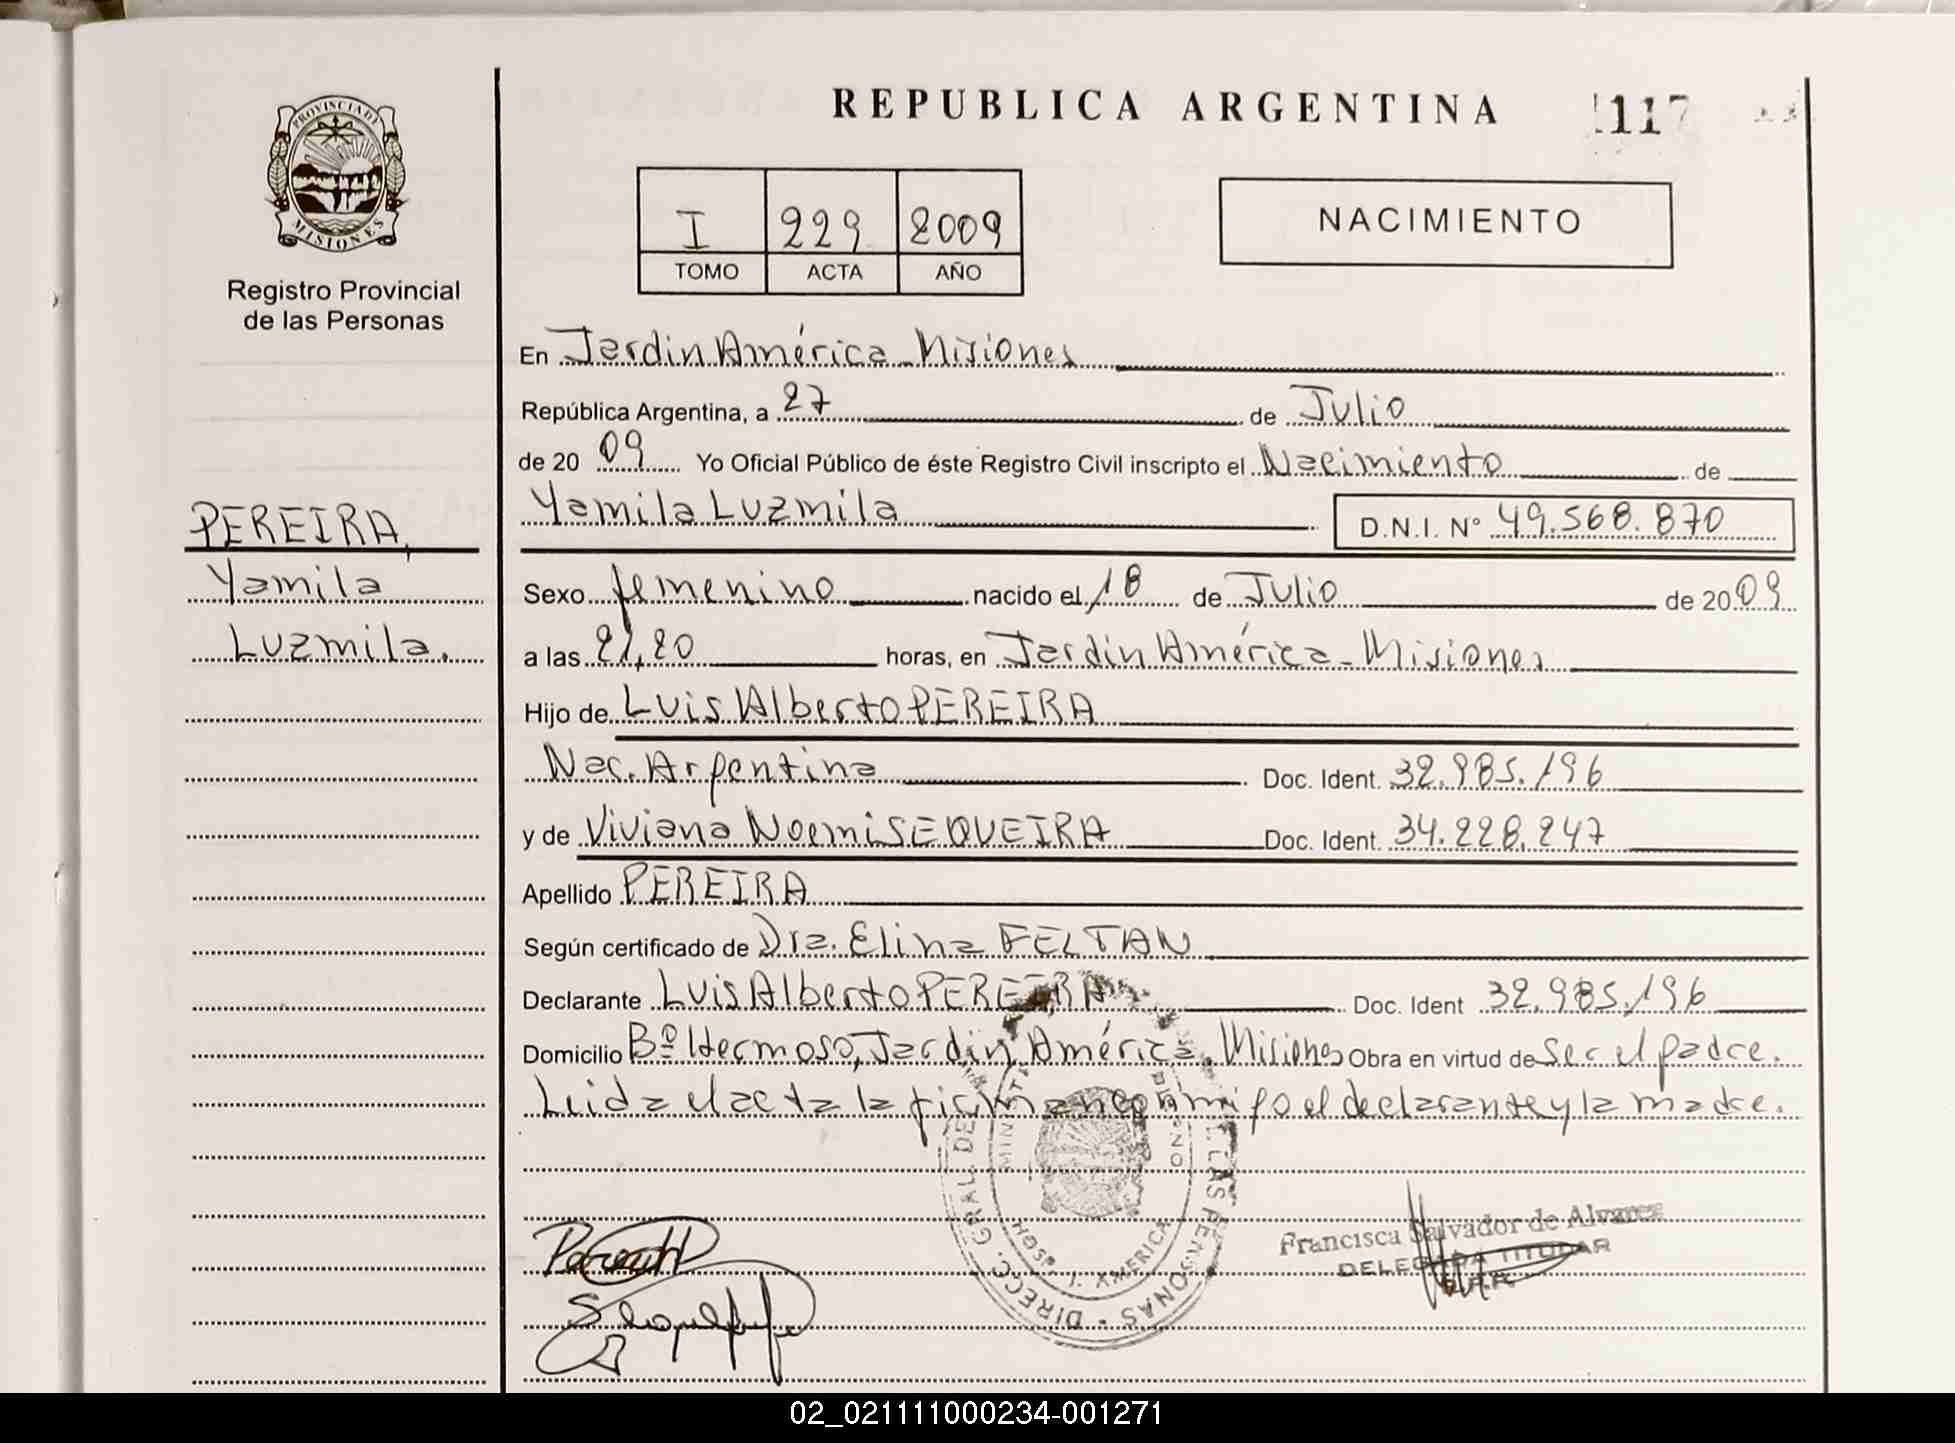 REPUBLICA ARGENTINA
117
PROVINCIA DE
MISIONES
Registro Provincial
de las Personas
I 229 2009
TOMO ACTA AÑO
NACIMIENTO
En Jardin América - Misiones
República Argentina, a 27 de Julio
de 20 09 Yo Oficial Público de éste Registro Civil inscripto el Nacimiento de
Yamila Luzmila D.N.I. Nº 49.568.870
PEREIRA,
Yamila
Luzmila.
Sexo femenino nacido el 18 de Julio de 20 09
a las 21,20 horas, en Jardin América - Misiones
Hijo de Luis Alberto PEREIRA
Nac. Argentina Doc. Ident. 32.985.196
y de Viviana Noemi SEQUEIRA Doc. Ident. 34.228.247
Apellido PEREIRA
Según certificado de Dra. Elina FELTAN
Declarante Luis Alberto PEREIRA Doc. Ident 32.985.196
Domicilio Bº Hermoso, Jardin América, Misiones Obra en virtud de ser el padre.
Leida el acta la firman conmigo el declarante y la madre.
DIRECC. GRAL. DE LAS PERSONAS
HOSP. J. AMERICA
Francisca Salvador de Alvarez
DELEGADA TITULAR
02_021111000234-001271